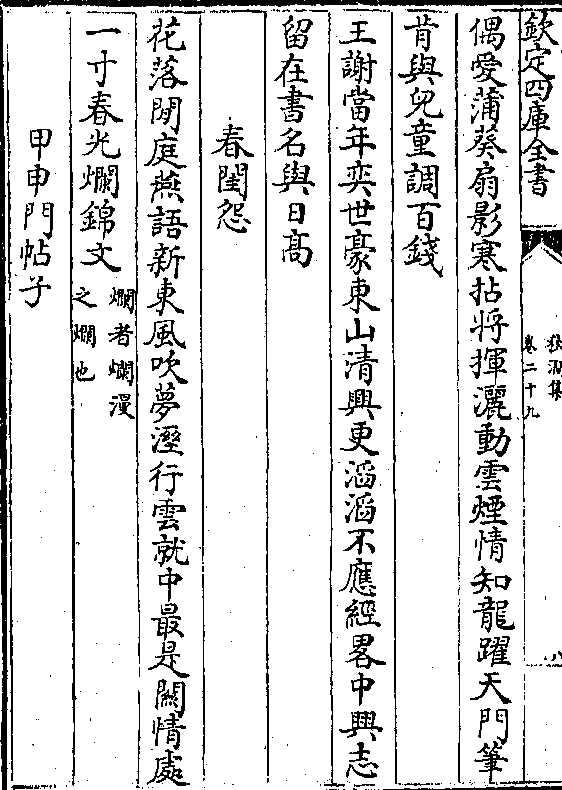 欽定四庫全書
秋澗集
卷二十九
八
偶愛蒲葵扇影寒拈將揮灑動雲煙情知龍躍天門筆
肯與兒童調百錢
王謝當年奕世豪東山清興更滔滔不應經畧中興志
留在書名與日高
春閨怨
花落閒庭燕語新東風吹夢溼行雲就中最是關情處
一寸春光爛錦文
爛者爛漫
之爛也
甲申門帖子